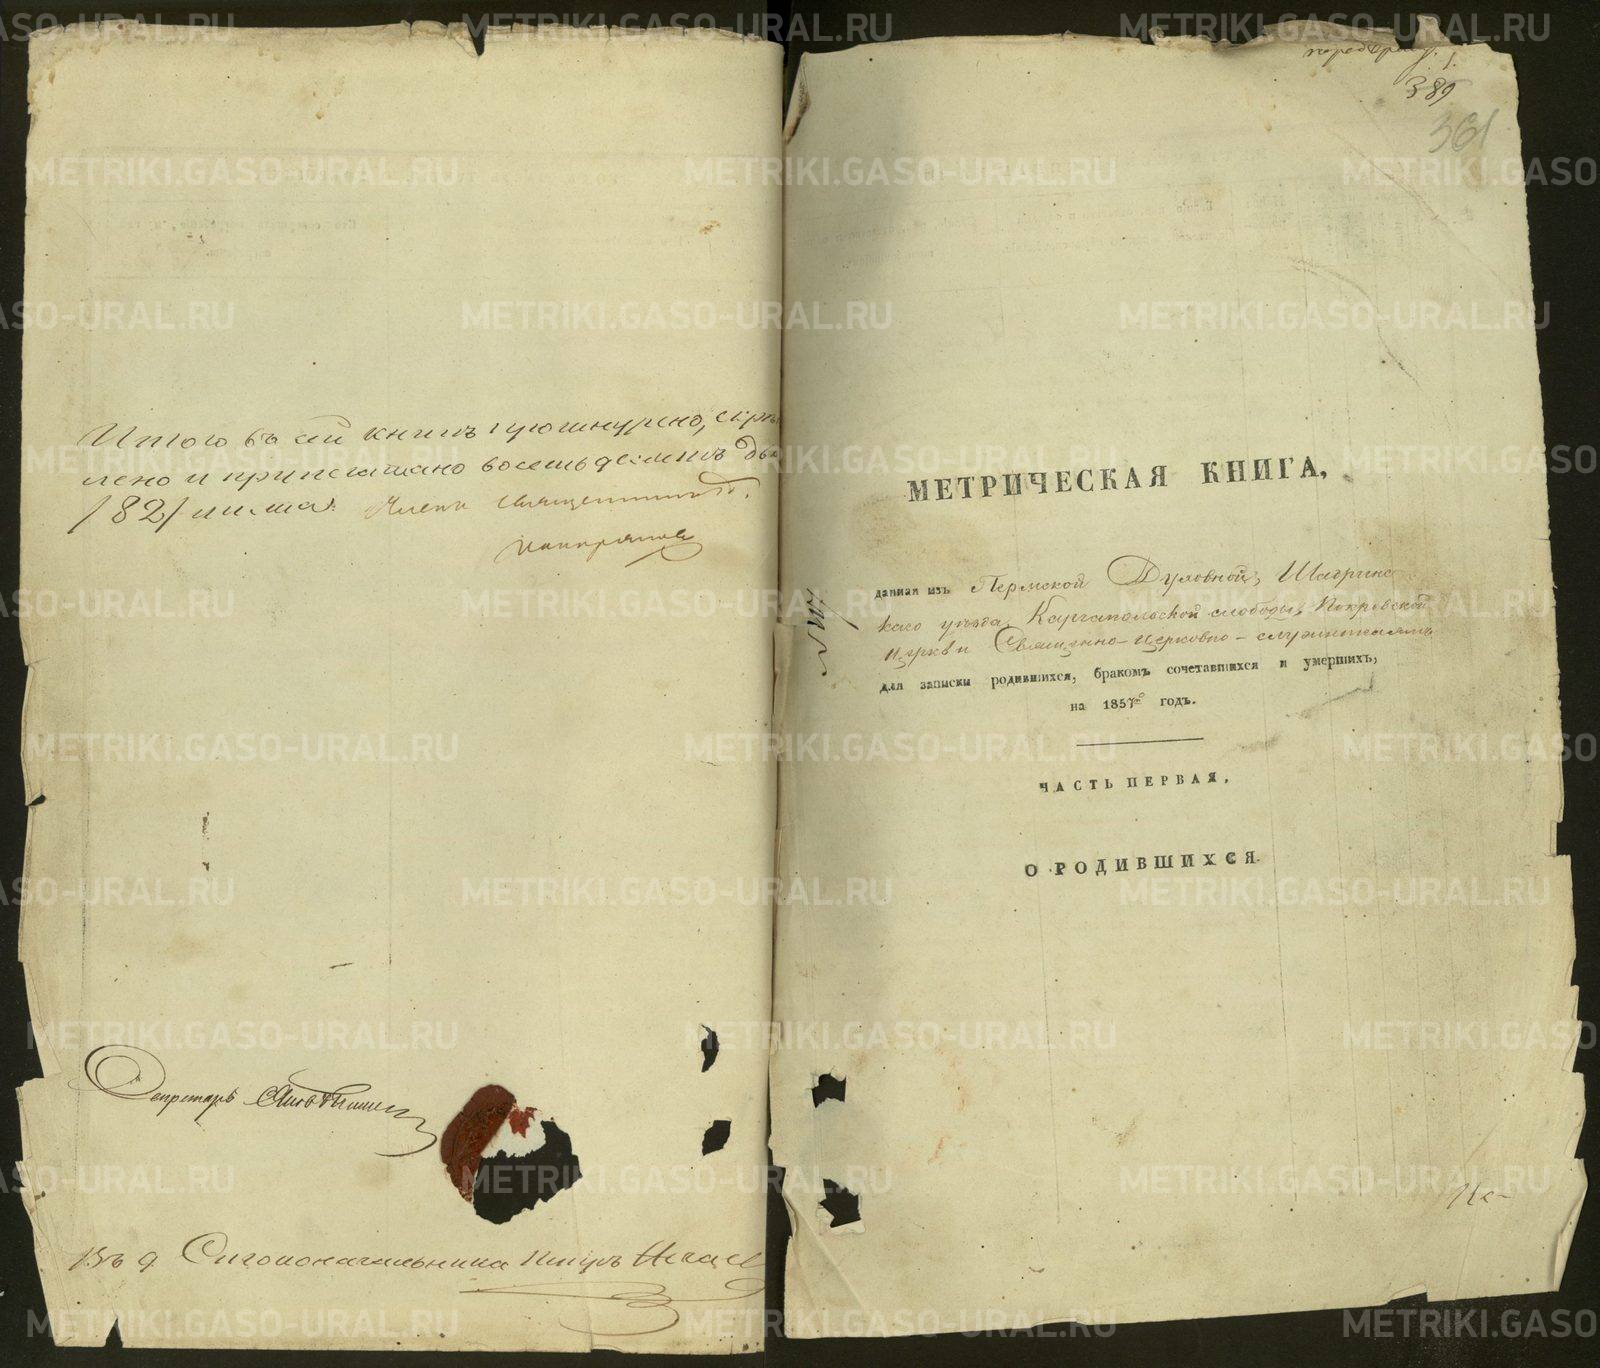 Итого въ сей книгѣ прошнурено, скрѣп
лено и припечатано восемьдесятъ два
/82/ листа. Членъ Священникъ
Секретарь
Въ д. Столоначальника Петръ
389
361
МЕТРИЧЕСКАЯ КНИГА,
данная изъ Пермской Духовной, Шадринс
каго уѣзда, Каргапольской слободы, Покровской
церкви Священно-церковно-служителямъ
для записки родившихся, бракомъ сочетавшихся и умершихъ,
на 1857й годъ.
ЧАСТЬ ПЕРВАЯ,
О РОДИВШИХСЯ.
METRIKI.GASO-URAL.RU